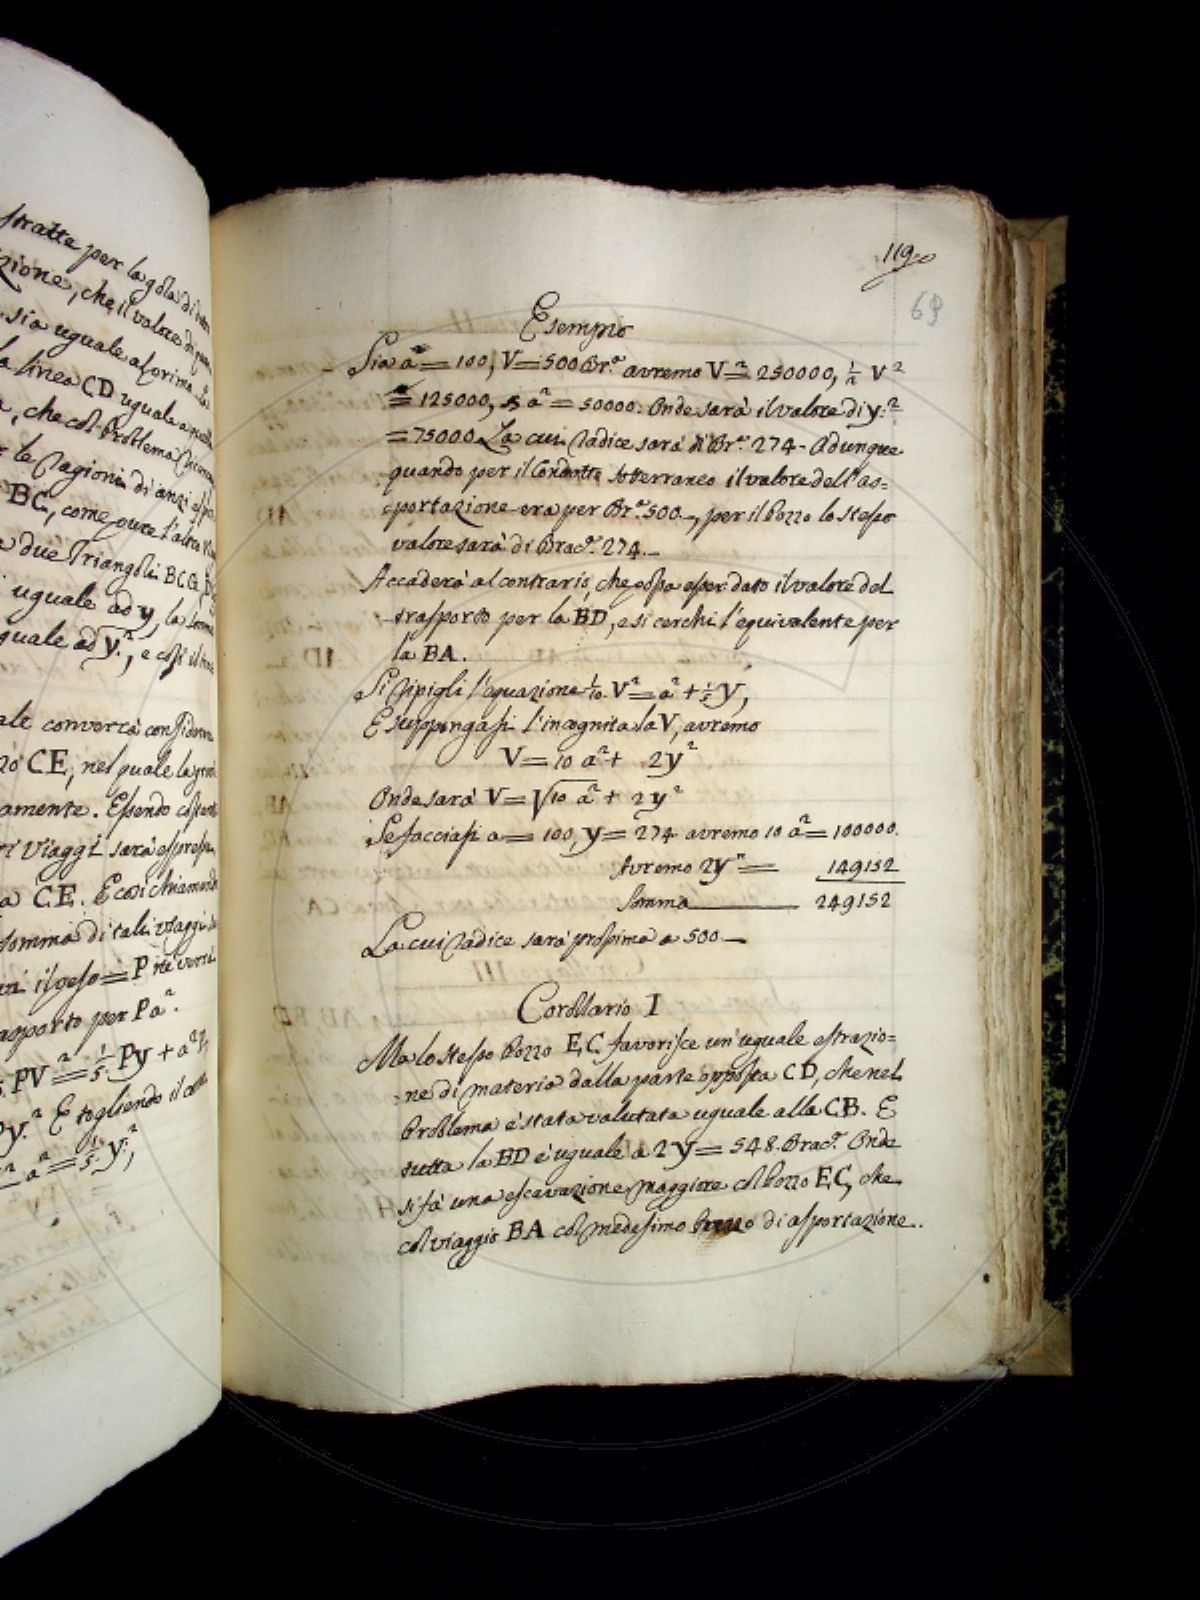 stratte per la gola di
zione, che il valore di
sia uguale al prima
la linea CD uguale a
, che col Problema
le ragioni di anzi
BC, come pure l'altro
due Triangoli BCG
uguale ad y, la
quale ad y², e così il
ale converrà
CE, nel quale la
amente. Essendo
ri Viaggi sarà
a CE. E così chiamando
somma di tali viaggi
il peso = P
rapporto per Pa².
PV² = 1/5 Py + a²P,
Py.² E togliendo il
a² = 1/5 y²,
119
69
Esempio
Sia a = 100, V = 500 Br.ª avremo V² = 250000, 1/2 V²
= 125000, 5 a² = 50000. Onde sarà il valore di y.²
= 75000. La cui radice sarà di Br.ª 274 - Adunque
quando per il Condotto sotterraneo il valore dell'as=
=portazione era per Br.ª 500 -, per il Pozzo lo stesso
valore sarà di Brac.ª 274. -
Accaderà al contrario, che possa esser dato il valore del
trasporto per la BD, e si cerchi l'equivalente per
la BA.
Si ripigli l'equazione 1/10 V² = a² + 1/5 y²,
E suppongasi l'incognita la V, avremo
V = 10 a² + 2y²
Onde sarà V = √10 a² + 2y²
Se facciasi a = 100, y = 274 avremo 10 a² = 100000.
Avremo 2y² = 149152
Somma 249152
La cui radice sarà prossima a 500 -
Corollario I
Ma lo stesso Pozzo EC favorisce un'uguale estrazio=
=ne di materia dalla parte opposta CD, che nel
Problema è stata valutata uguale alla CB. E
tutta la BD è uguale a 2 y = 548. Brac.ª Onde
si fà una escavazione maggiore col Pozzo EC, che
col viaggio BA col medesimo di asportazione.